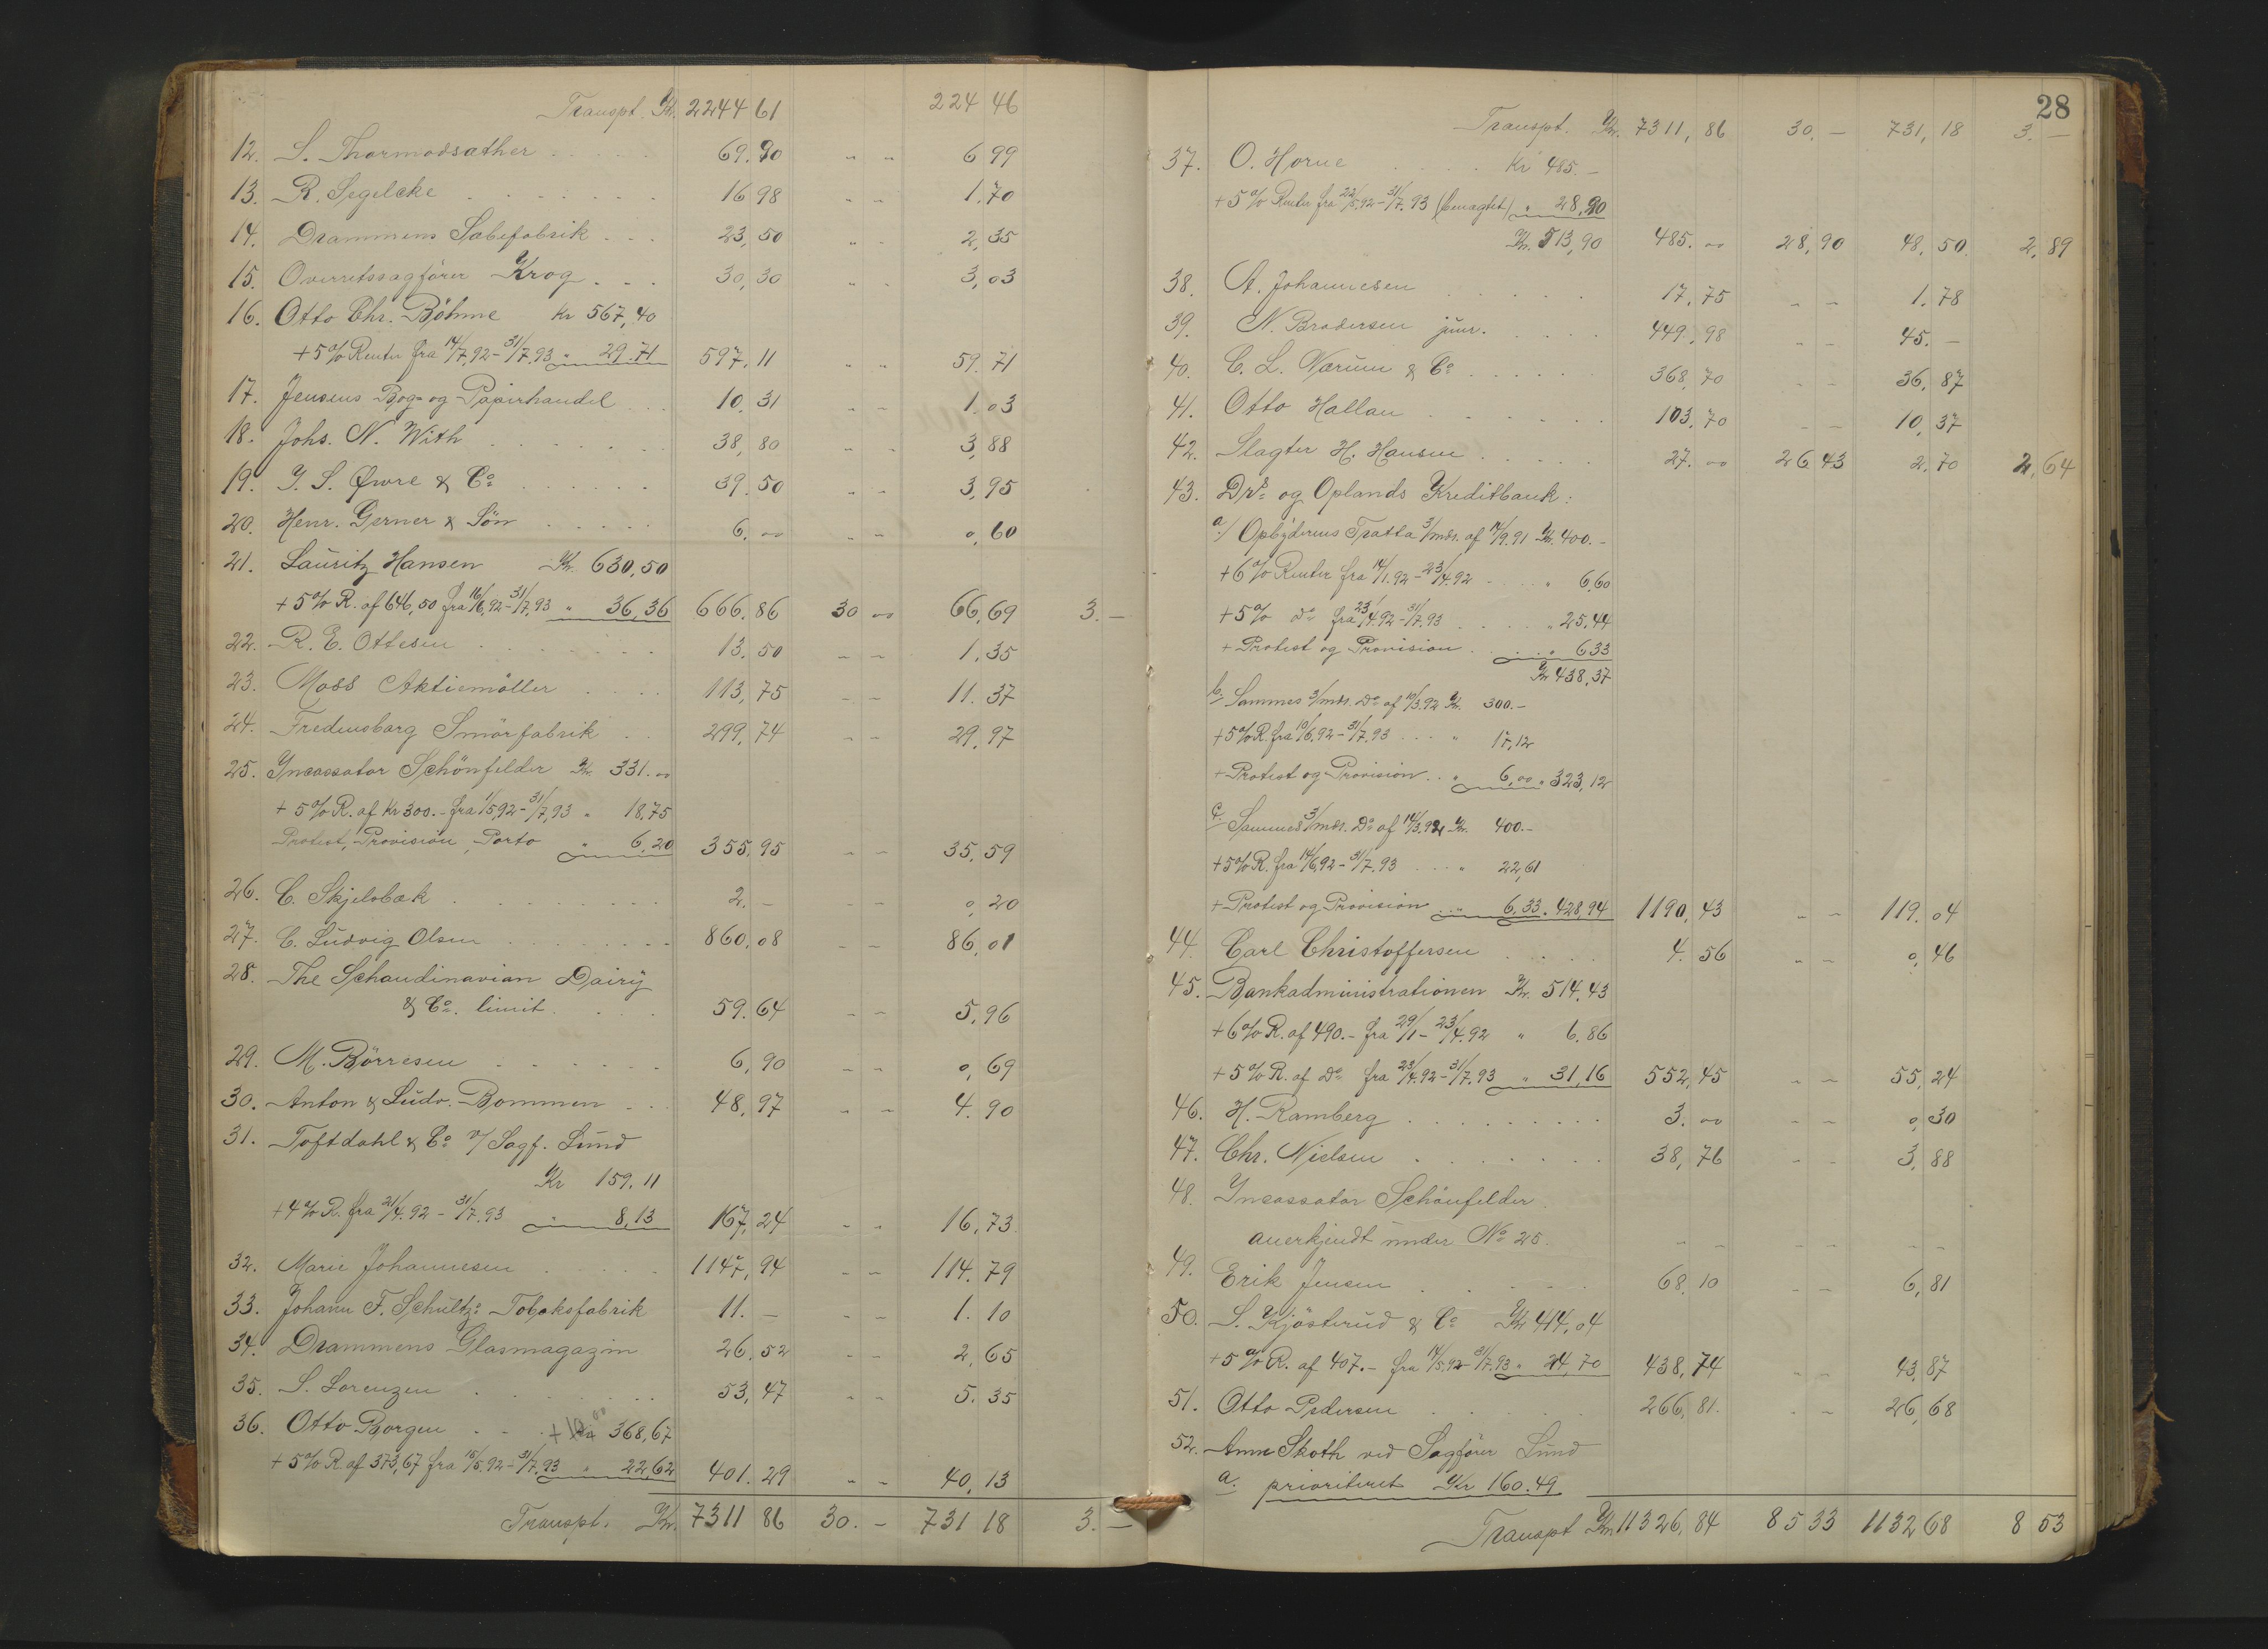 Transpt. Kr. 2244 61 224 46
12. S. Thormodsæther . . . . . 69.90 " " 6 99
13. R. Segelcke . . . . . . . 16 98 " " 1.70
14. Drammens Sæbefabrik . . . 23,50 " " 2,35
15. Overretssagfører Krog . . . 30,30 " " 3,03
16. Otto Chr. Böhme Kr 567,40
+ 5% Renter fra 14/7.92 - 31/7.93 " 29.71 597.11 " " 59.71
17. Jensens Bog- og Papirhandel . . 10.31 " " 1.03
18. Johs. N. With . . . . . . 38,80 " " 3,88
19. J. S. Øwre & Co . . . . . . 39.50 " " 3,95
20. Henr. Gerner & Søn . . . . . 6.00 " " 0,60
21. Lauritz Hansen Kr. 630,50
+ 5% R. af 646,50 fra 16/6.92 - 31/7.93 " 36,36 666.86 30 00 66,69 3.-
22. R. E. Ottesen . . . . . . . 13.50 " " 1.35
23. Moss Aktiemøller . . . . 113,75 " " 11.37
24. Fredensborg Smörfabrik . . 299.74 " " 29.97
25. Yncassator Schönfelder Kr. 331.00
+ 5% R. af Kr 300.- fra 1/5.92 - 31/7.93 " 18,75
Protest, Provision, Porto " 6,20 355,95 " " 35,59
26. C. Skjelobæk . . . . . . . . 2.- " " 0,20
27. C. Ludvig Olsen . . . . . . . 860,08 " " 86,01
28. The Schandinavian Dairy
& Co. limit. . . . . 59.64 " " 5,96
29. M. Börresen . . . . . . . 6,90 " " 0,69
30. Anton & Ludv. Bommen . . . 48,97 " " 4.90
31. Toftdahl & Co v/ Sagf. Lund
Kr 159.11
+ 4% R. fra 21/4.92 - 31/7.93 " 8,13 167,24 " " 16,73
32. Marie Johannesen . . . . . 1147,94 " " 114.79
33. Johann F. Schultz: Tobaksfabrik 11.- " " 1.10
34. Drammens Glasmagazin 26.52 " " 2,65
35. S. Lorenzen . . . . . . . 53,47 " " 5.35
36. Otto Borgen . . . +10 00 368,67
+ 5% R. af 373,67 fra 16/5.92 - 31/7.93 " 22,62 401.29 " " 40,13
Transpt. Kr. 7311 86 30.- 731 18 3.-
28
Transpt. Kr. 7311,86 30.- 731,18 3.-
37. O. Horne . . . . Kr 485.-
+ 5% Renter fra 22/5.92 - 31/7.93 (benægtet) " 28,90
Kr. 513,90 485.00 28,90 48,50. 2,89
38. A. Johannesen . . . . . 17,75 " " 1.78
39. N. Brodersen junr. . . . . 449,98 " " 45.-
40. C. L. Nærum & Co . . . . . . 368,70 " " 36,87
41. Otto Hallan . . . . . . 103,70 " " 10,37
42. Slagter H. Hansen . . . . . 27.00 26 43 2,70 2,64
43. Drs. og Oplands Kreditbank:
a/ Opbyderens Tratta 3/mdr. af 14/9.91 Kr. 400.-
+ 6% Renter fra 14/1.92 - 23/4.92 . . . " 6,60
+ 5% do fra 23/4.92 - 31/7.93 . . . . . " 25,44
+ Protest og Provision . . . . " 6 33
Kr 438,37
b/ Sammes 3/mdr. Do af 10/3.92 Kr. 300.-
+ 5% R. fra 10/6.92 - 31/7.93 . . . " 17,12
+ Protest og Provision . . " 6,00 " 323,12
c/ Sammes 3/mdr. Do af 14/3.92 Kr. 400.-
+ 5% R. fra 14/6.92 - 31/7.93 . . . " 22,61
+ Protest og Provision . . " 6,33. 428,94 1190,43 " " 119.04
44. Carl Christoffersen . . . . 4.56 " " 0,46
45. Bankadministrationen Kr. 514,43
+ 6% R. af 490.- fra 29/1 - 23/4.92 " 6.86
+ 5% R. af Do fra 23/4.92 - 31/7.93 " 31,16 552,45 " " 55,24
46. H. Ramberg . . . . . . . . . 3.00 " " 0,30
47. Chr. Nielsen . . . . . . . 38,76 " " 3,88
48. Yncassator Schönfelder.
anerkjendt under No 25. " " " " " "
49. Erik Jensen . . . . . . 68,10 " " 6,81
50. S. Kjøsterud & Co Kr 414,04
+ 5% R. af 407.- fra 14/5.92 - 31/7.93 " 24,70 438,74 " " 43,87
51. Otto Pedersen . . . . . 266,81. " " 26,68
52. Anne Skoth ved Sagfører Lund
a. prioriteret Kr 160.49
Transpt Kr. 11326,84 85 33 1132 68 8 53